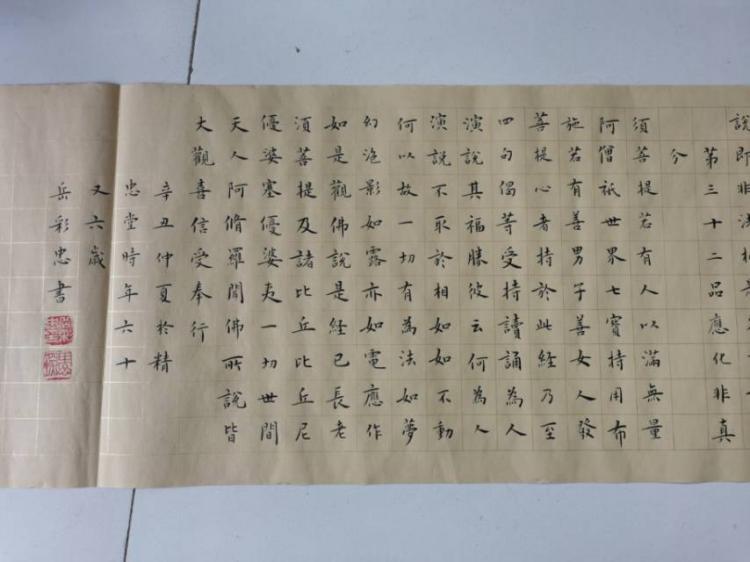 說即非法相是
第三十二品應化非真
分
須菩提若有人以滿無量
阿僧祇世界七寶持用布
施若有善男子善女人發
菩提心者持於此經乃至
四句偈等受持讀誦為人
演說其福勝彼云何為人
演說不取於相如如不動
何以故一切有為法如夢
幻泡影如露亦如電應作
如是觀佛說是經已長老
須菩提及諸比丘比丘尼
優婆塞優婆夷一切世間
天人阿脩羅聞佛所說皆
大觀喜信受奉行
辛丑仲夏於精
忠堂時年六十
又六歲
岳彩忠書